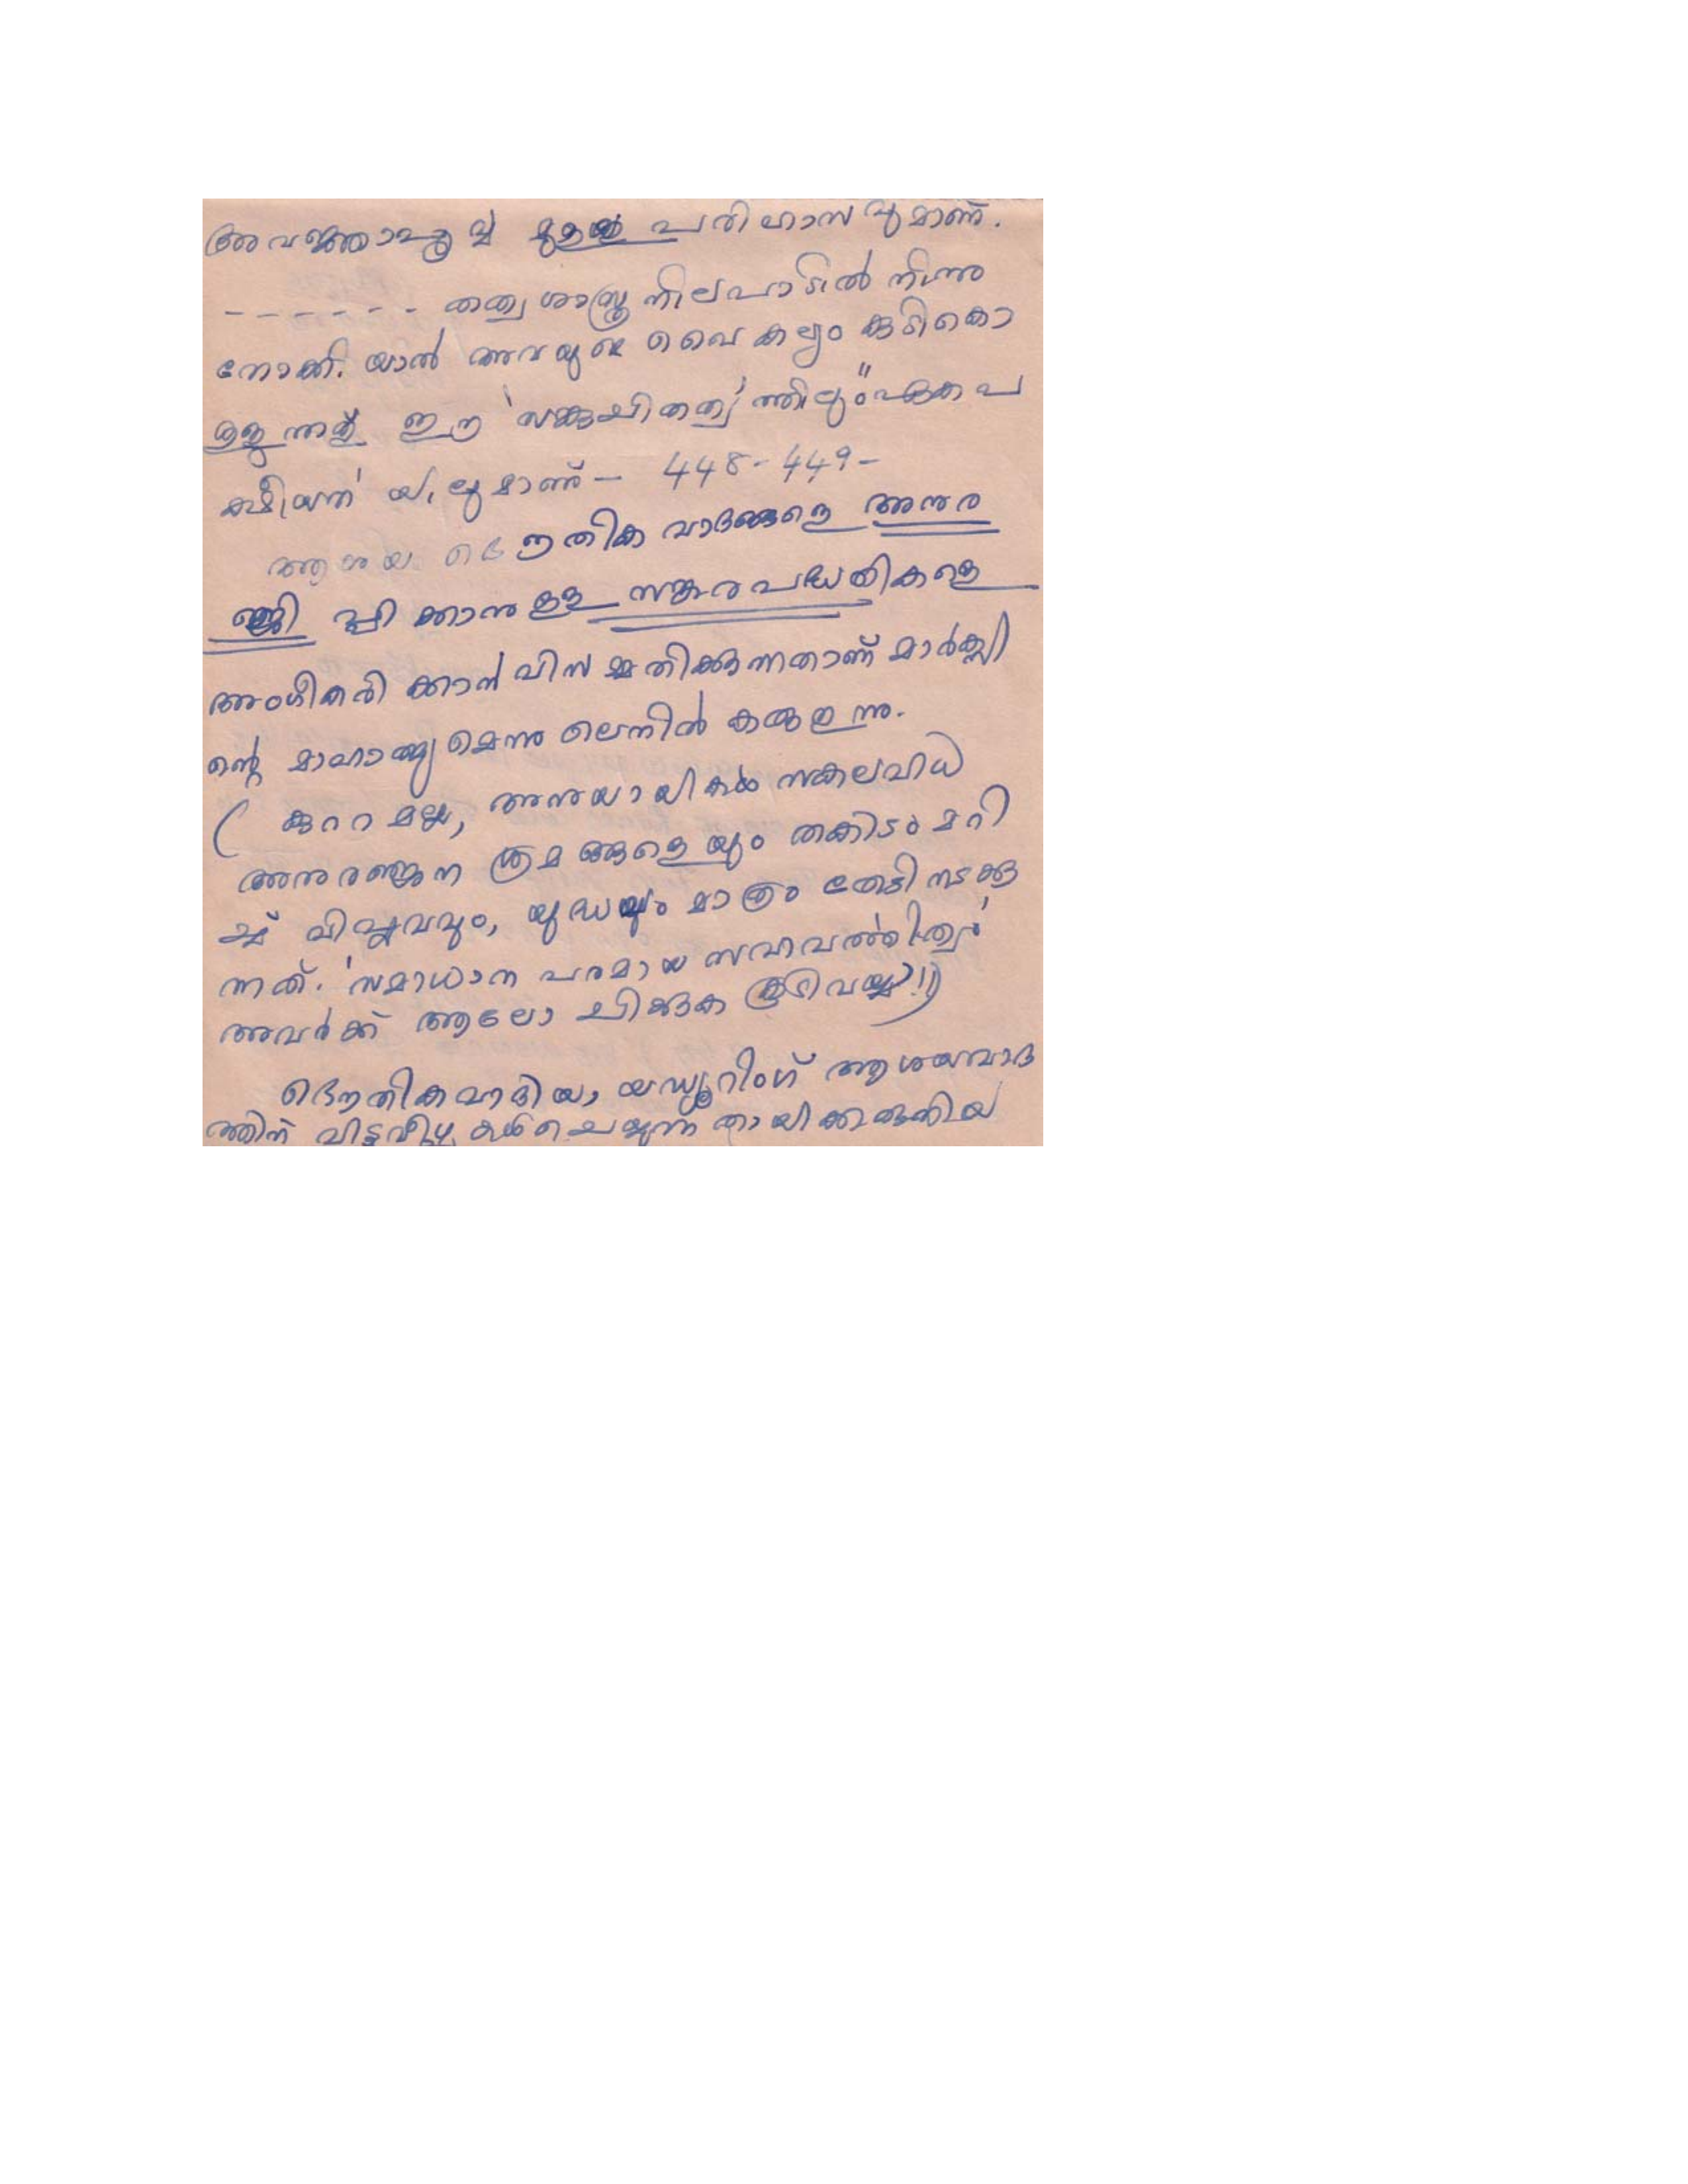 അവജ്ഞാപൂർവ്വ മുള്ള പരിഹാസവുമാണ്.
------ തത്വശാസ്ത്ര നിലപാടിൽ നിന്നു
നോക്കിയാൽ അവയുടെ വൈകല്യം കുടികൊ
ള്ളുന്നത് ഈ 'സങ്കുചിതത്വ'ത്തിലും "ഏകപ
ക്ഷീയത' യിലുമാണ് — 448-449-
ആശയ ഭൌതിക വാദങ്ങളെ അനുര
ഞ്ജിപ്പിക്കാനുള്ള സങ്കരപദ്ധതികളെ
അംഗീകരിക്കാൻ വിസമ്മതിക്കുന്നതാണ് മാർക്സി
ന്റെ മാഹാത്മ്യമെന്നു ലെനിൻ കരുതുന്നു.
( കുററമല്ല, അനുയായികൾ സകലവിധ
അനുരഞ്ജന ശ്രമങ്ങളെയും തകിടം മറി
ച്ച് വിപ്ലവവും, യുദ്ധവും മാത്രം തേടി നടക്കു
ന്നത്. 'സമാധാന പരമായ സഹവർത്തിത്വം'
അവർക്ക് ആലോചിക്കുക കൂടിവയ്യ!!)
ഭൌതികവാദിയായ ഡ്യൂറിംഗ് ആശയവാദ
ത്തിന് വിട്ടുവീഴ്ചകൾ ചെയ്യുന്നതായിക്കരുതിയ